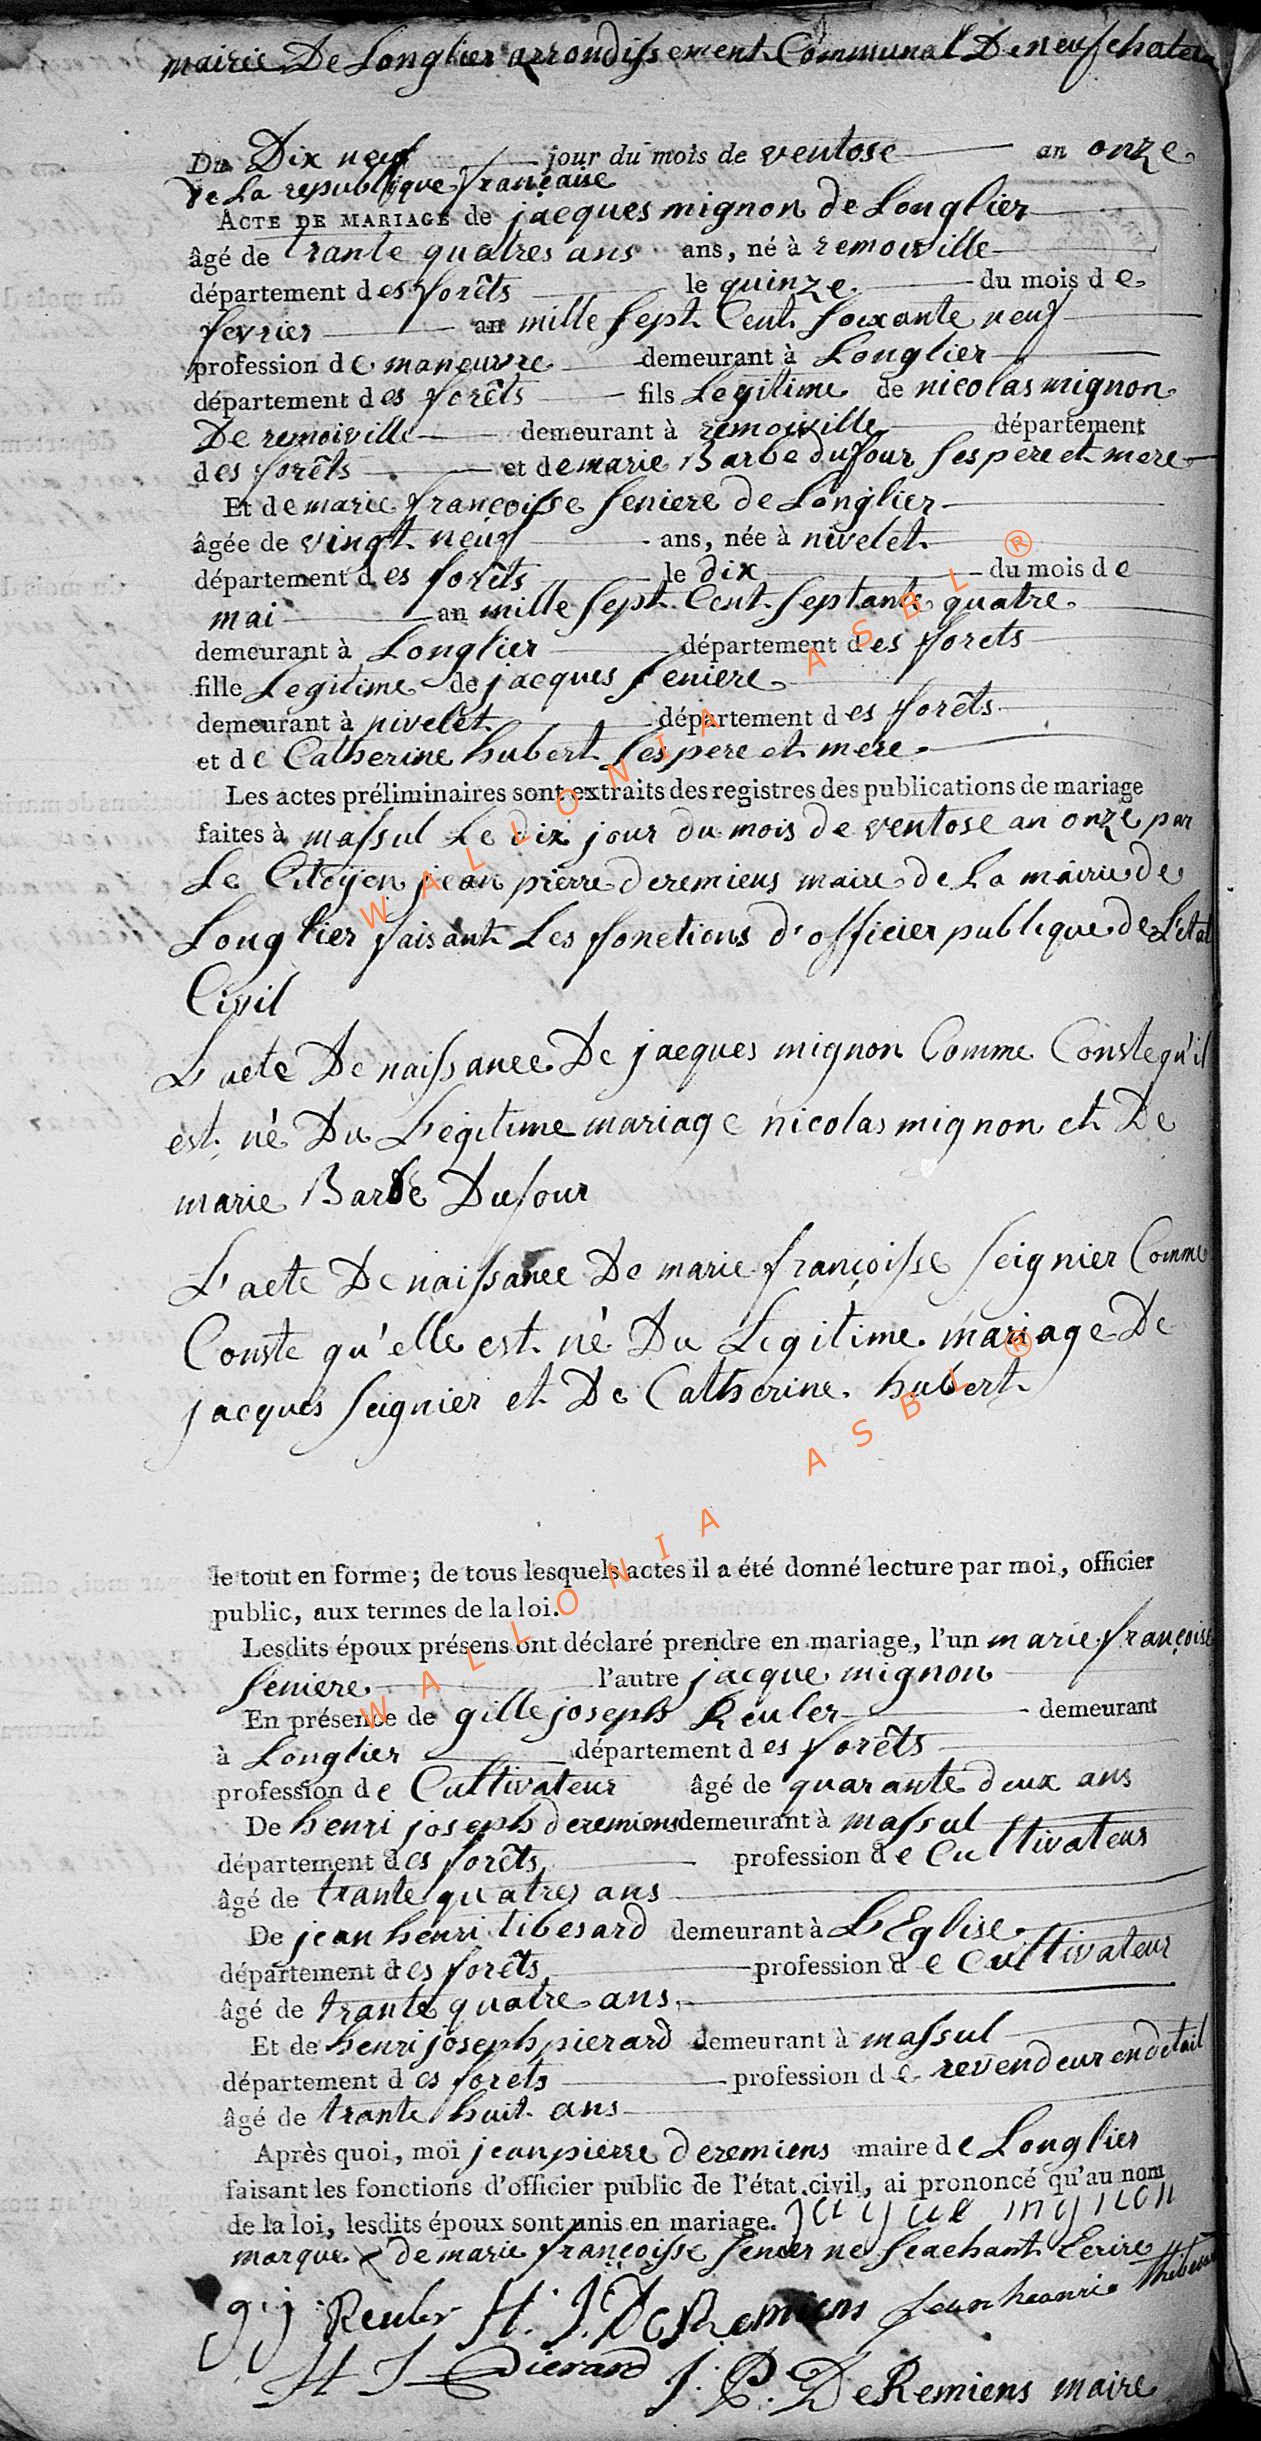 mairie De Longlier arrondissement Communal De neufchateau
Du Dix neuf jour du mois de ventose an onze
de La republique française
ACTE DE MARIAGE de jacques mignon de Longlier
âgé de trante quatres ans ans, né à remoiville
département des forêts le quinze du mois de
fevrier an mille sept Cent soixante neuf
profession de maneuvre demeurant à Longlier
département des forêts fils Legitime de nicolas mignon
De remoiville demeurant à remoiville département
des forêts et de marie Barbe dufour ses pere et mere
Et de marie françoisse seniere de Longlier
âgée de vingt neuf ans, née à nivelet
département des forêts le dix du mois de
mai an mille sept Cent septante quatre
demeurant à Longlier département des forets
fille Legitime de jacques seniere
demeurant à nivelet département des forêts
et de Catherine hubert ses pere et mere
Les actes préliminaires sont extraits des registres des publications de mariage
faites à massul Le dix jour du mois de ventose an onze par
Le Citoÿen jean pierre deremiens maire de La mairie de
Longlier faisant Les fonctions d'officier publique de L'etat
Civil
L'acte De naissance De jacques mignon Comme Conste qu'il
est né Du Legitime mariage nicolas mignon et De
marie Barbe Dufour
L'acte De naissance De marie françoisse seignier Comme
Conste qu'elle est né Du Legitime mariage De
jacques seignier et De Catherine hubert
le tout en forme; de tous lesquels actes il a été donné lecture par moi, officier
public, aux termes de la loi.
Lesdits époux présens ont déclaré prendre en mariage, l'un marie françoise
seniere l'autre jacque mignon
En présence de gille joseph Reuler demeurant
à Longlier département des forêts
profession de Cultivateur âgé de quarante deux ans
De henri joseph deremiens demeurant à massul
département des forêts profession de Cultivateur
âgé de trante quatres ans
De jean henri libesard demeurant à L'Eglise
département des forêts profession de Cultivateur
âgé de trante quatre ans
Et de henri joseph pierard demeurant à massul
département des forets profession de revendeur en detail
âgé de trante huit ans
Après quoi, moi jean pierre deremiens maire de Longlier
faisant les fonctions d'officier public de l'état civil, ai prononcé qu'au nom
de la loi, lesdits époux sont unis en mariage. jacque mignon
marque x de marie françoisse senier ne scachant Ecrire
g: j: Reuler H. J. DeRemiens jean heanri
H J Pierard J: P: DeRemiens maire
WALLONIA ASBL ®
WALLONIA ASBL ®